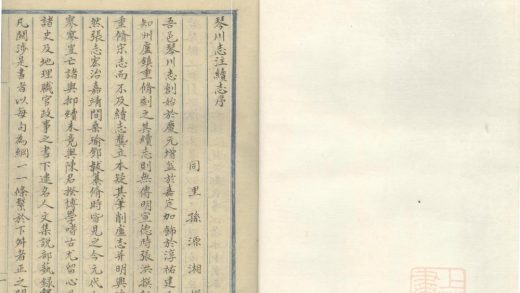 琴川志注續志序
同里孫源湘
吾邑琴川志創始於慶元增益於嘉定加飾於淳祐建
知州盧鎮重脩刻之其續志則無傳明宣德時張洪撰
重脩宋志而不及續志龔立本疑其筆削盧志并明與
然張志宏治嘉靖間桑瑜鄧韍纂脩時皆見之今元代
寥寥豈亡諸與抑續未竟與陳君揆博學嗜古尤留心
諸史及地理職官政事之書下逮名人文集說部蓺錄
凡關涉是書者以每句為綱一一條繫於下舛者正之